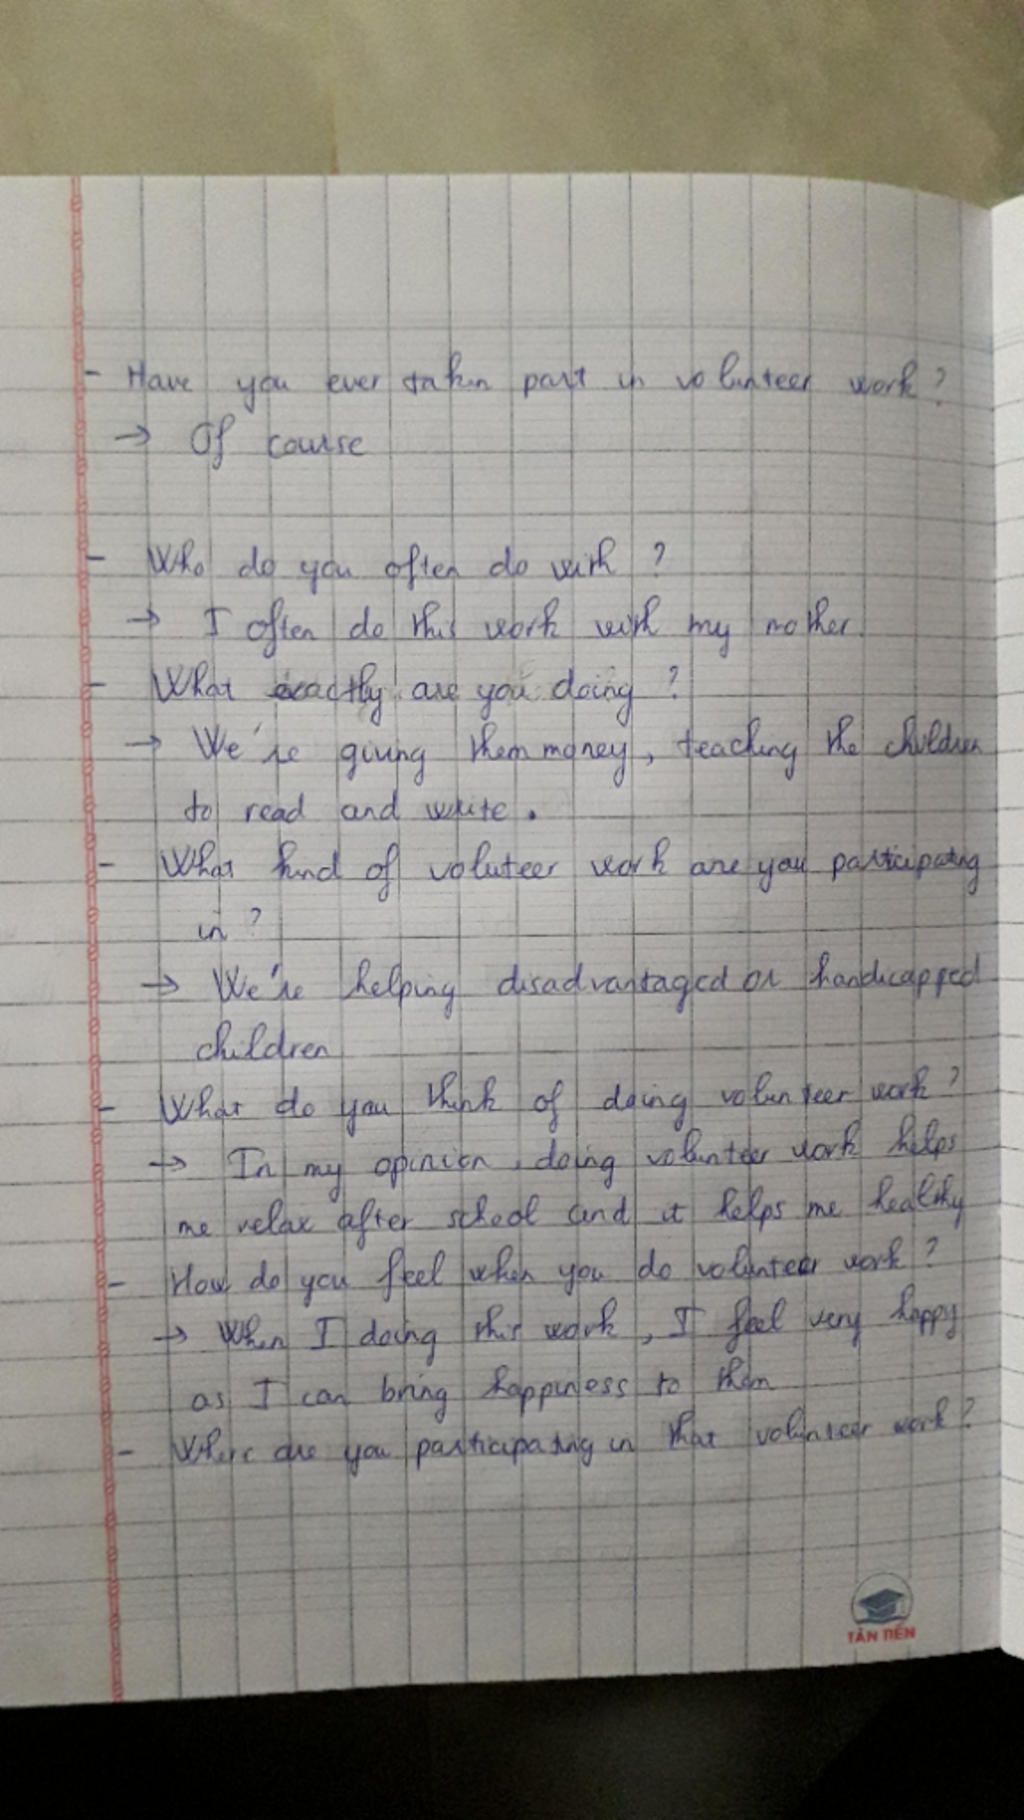 - Have you ever taken part in volunteer work?
→ Of course
- Who do you often do with?
→ I often do this work with my mother.
- What exactly are you doing?
→ We're giving them money, teaching the children
to read and write.
- What kind of voluteer work are you participating
in?
→ We're helping disadvantaged or handicapped
children
- What do you think of doing volunteer work?
→ In my opinion, doing volunteer work helps
me relax after school and it helps me healthy
- How do you feel when you do volunteer work?
→ When I doing this work, I feel very happy
as I can bring happiness to them
- Where are you participating in that volunteer work?
TÂN TIẾN